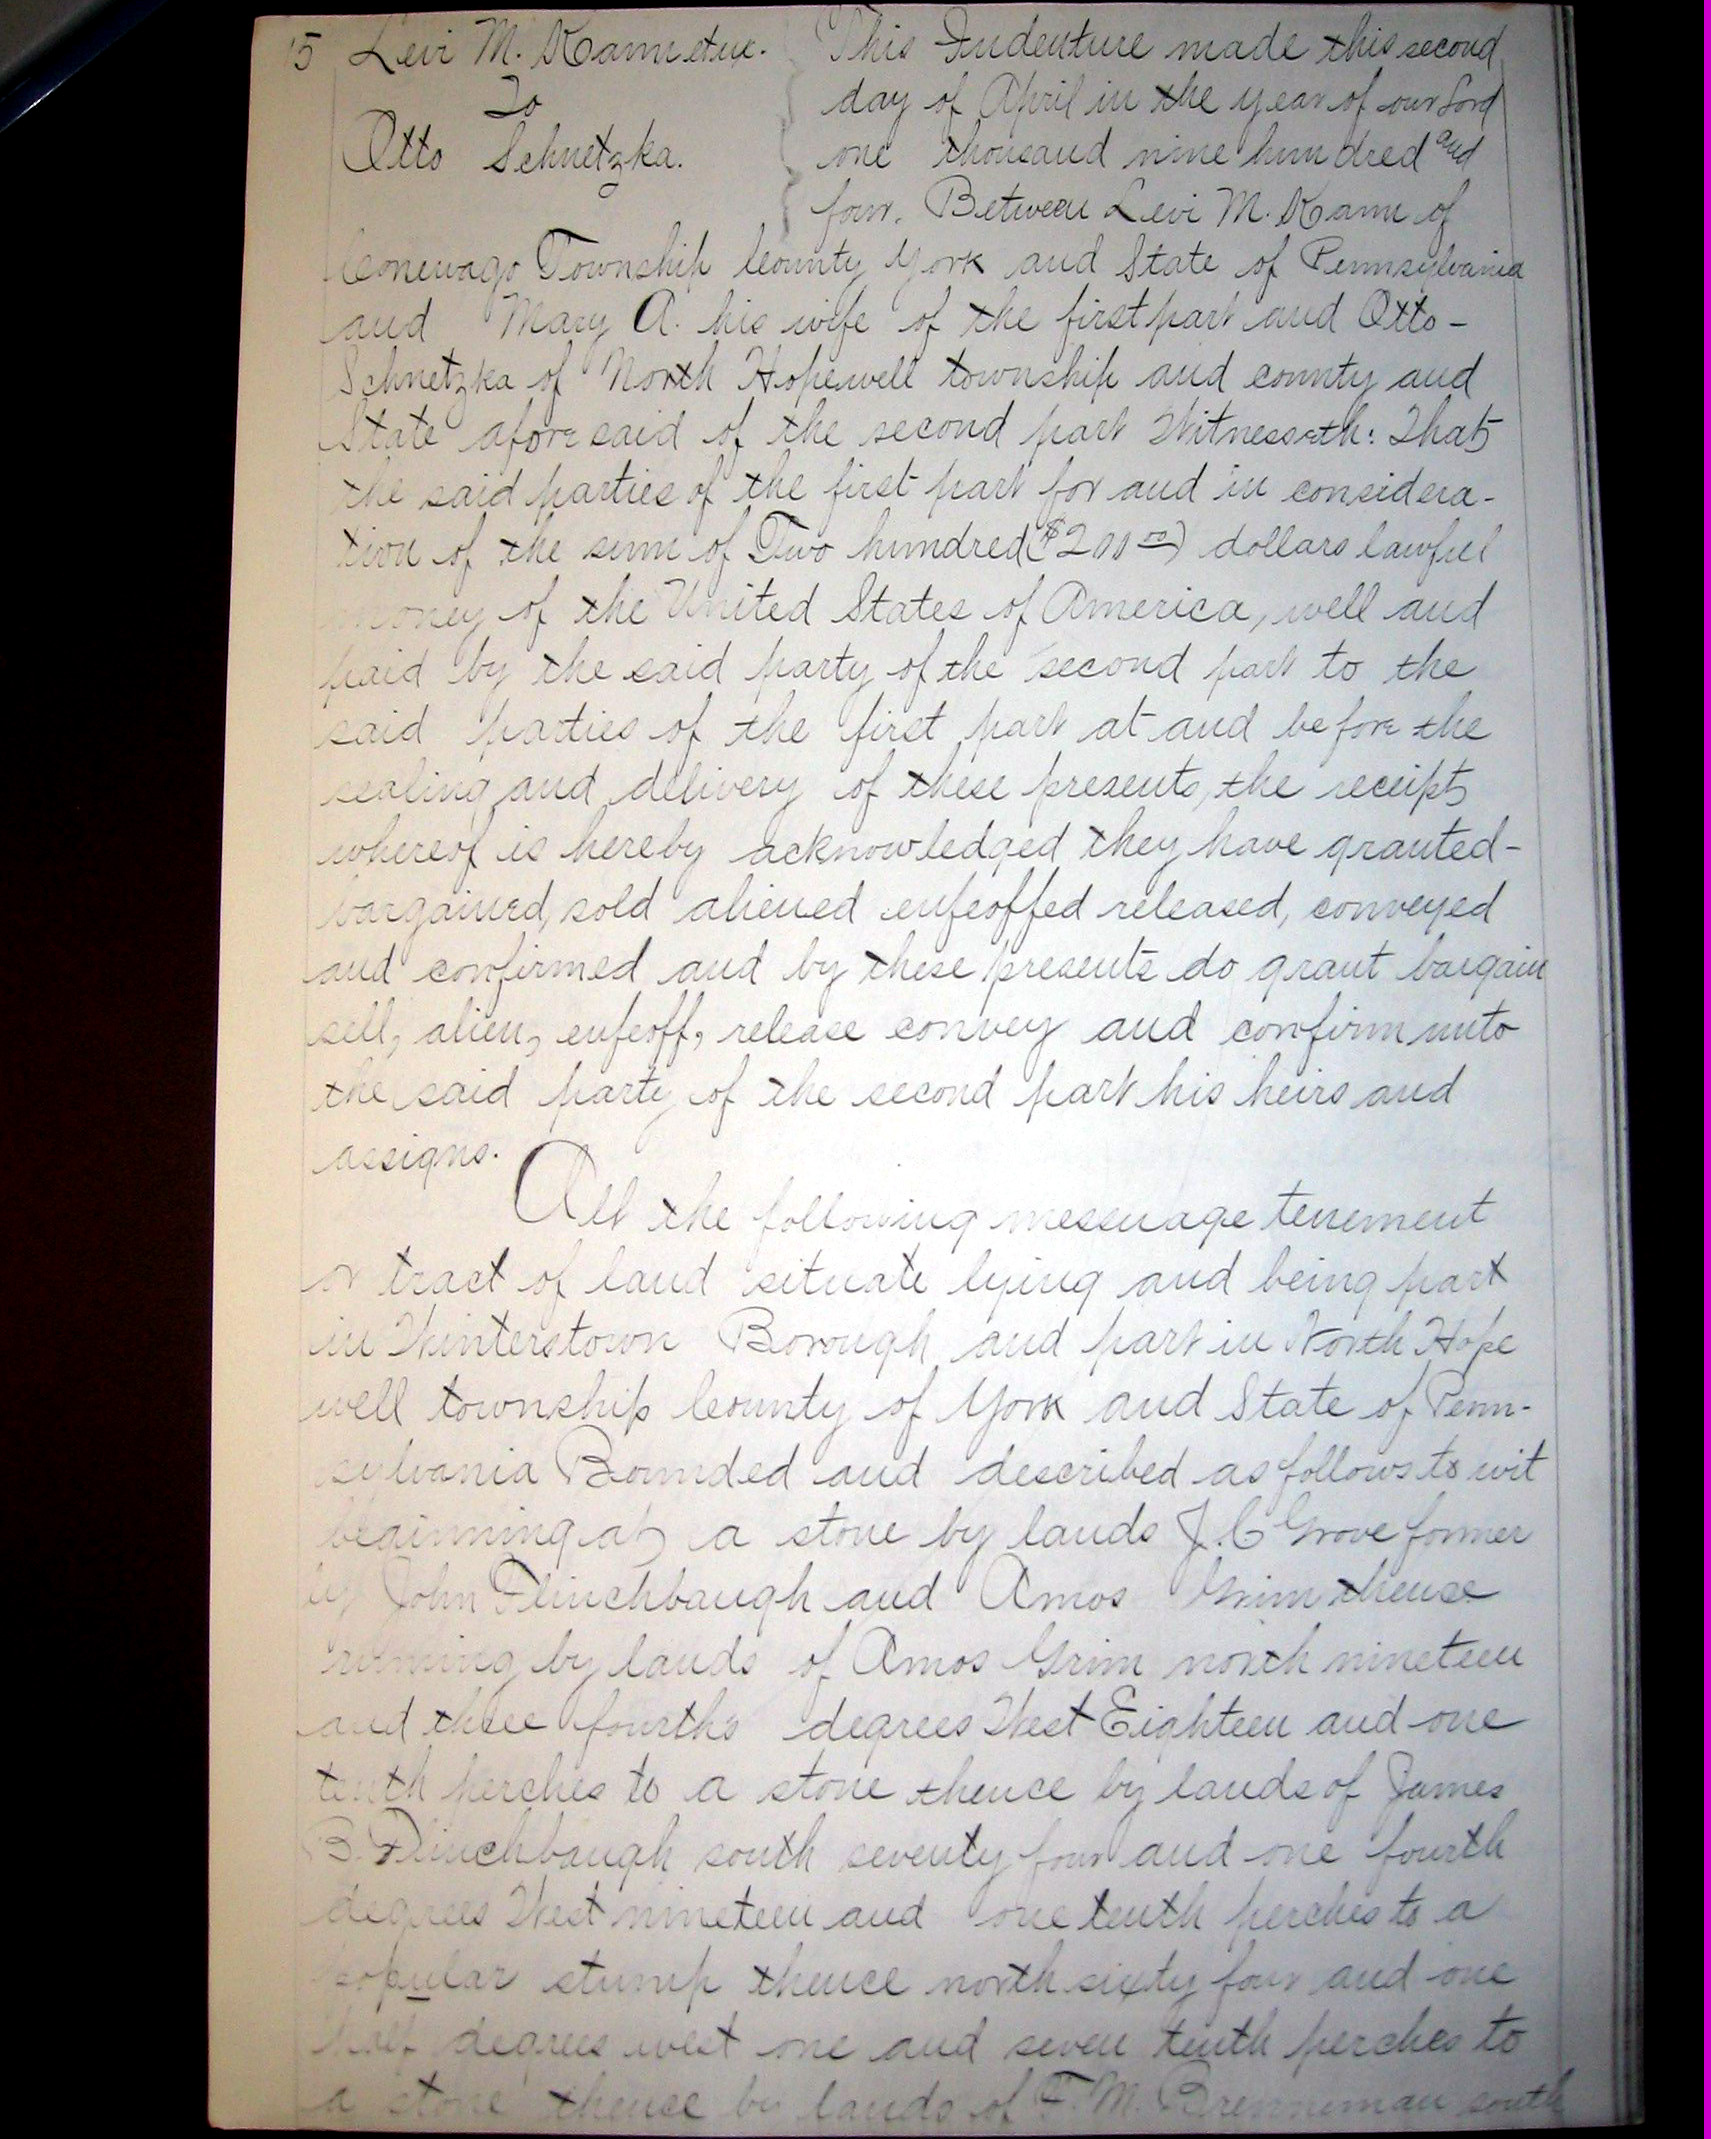 15 Levi M. Kann et ux.
To
Otto Schnetzka.
This Indenture made this second
day of April in the year of our Lord
one thousand nine hundred and
four. Between Levi M. Kann of
Conewago Township County York and State of Pennsylvania
and Mary A. his wife of the first part and Otto -
Schnetzka of North Hopewell township and county and
State aforesaid of the second part Witnesseth: That
the said parties of the first part for and in considera-
tion of the sum of Two hundred ($200 00) dollars lawful
money of the United States of America, well and
paid by the said party of the second part to the
said parties of the first part at and before the
sealing and delivery of these presents, the receipt
whereof is hereby acknowledged they have granted -
bargained, sold aliened enfeoffed released, conveyed
and confirmed and by these presents do grant bargain
sell, alien, enfeoff, release convey and confirm unto
the said party of the second part his heirs and
assigns.
All the following messuage tenement
or tract of land situate lying and being part
in Winterstown Borough and part in North Hope
well township County of York and State of Penn-
sylvania Bounded and described as follows to wit
beginning at a stone by lands J. C Grove former
ly John Flinchbaugh and Amos Grim thence
running by lands of Amos Grim north nineteen
and three fourths degrees West Eighteen and one
tenth perches to a stone thence by lands of James
B. Flinchbaugh south seventy four and one fourth
degrees West nineteen and one tenth perches to a
popular stump thence north sixty four and one
half degrees west one and seven tenth perches to
a stone thence by lands of F. M. Brenneman south